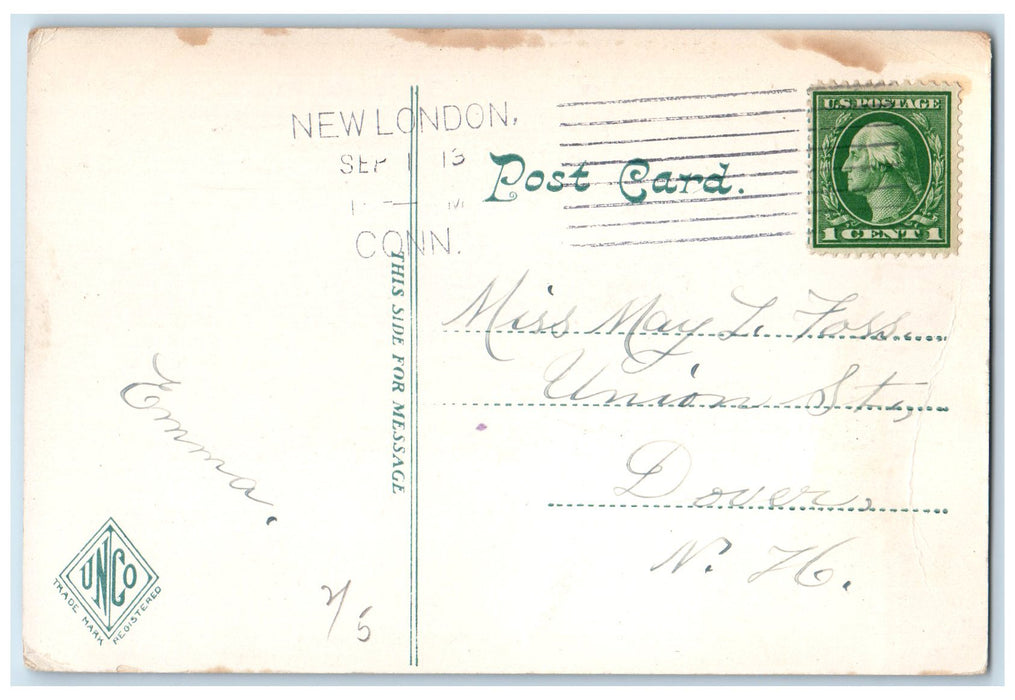 NEW LONDON,
SEP 1 13
M
CONN.
U.S. POSTAGE
1 CENT 1
Post Card.
THIS SIDE FOR MESSAGE
Miss May L. Foss.
Union St.,
Dover,
N. H.
Emma.
UNCO
TRADE MARK REGISTERED
2/5